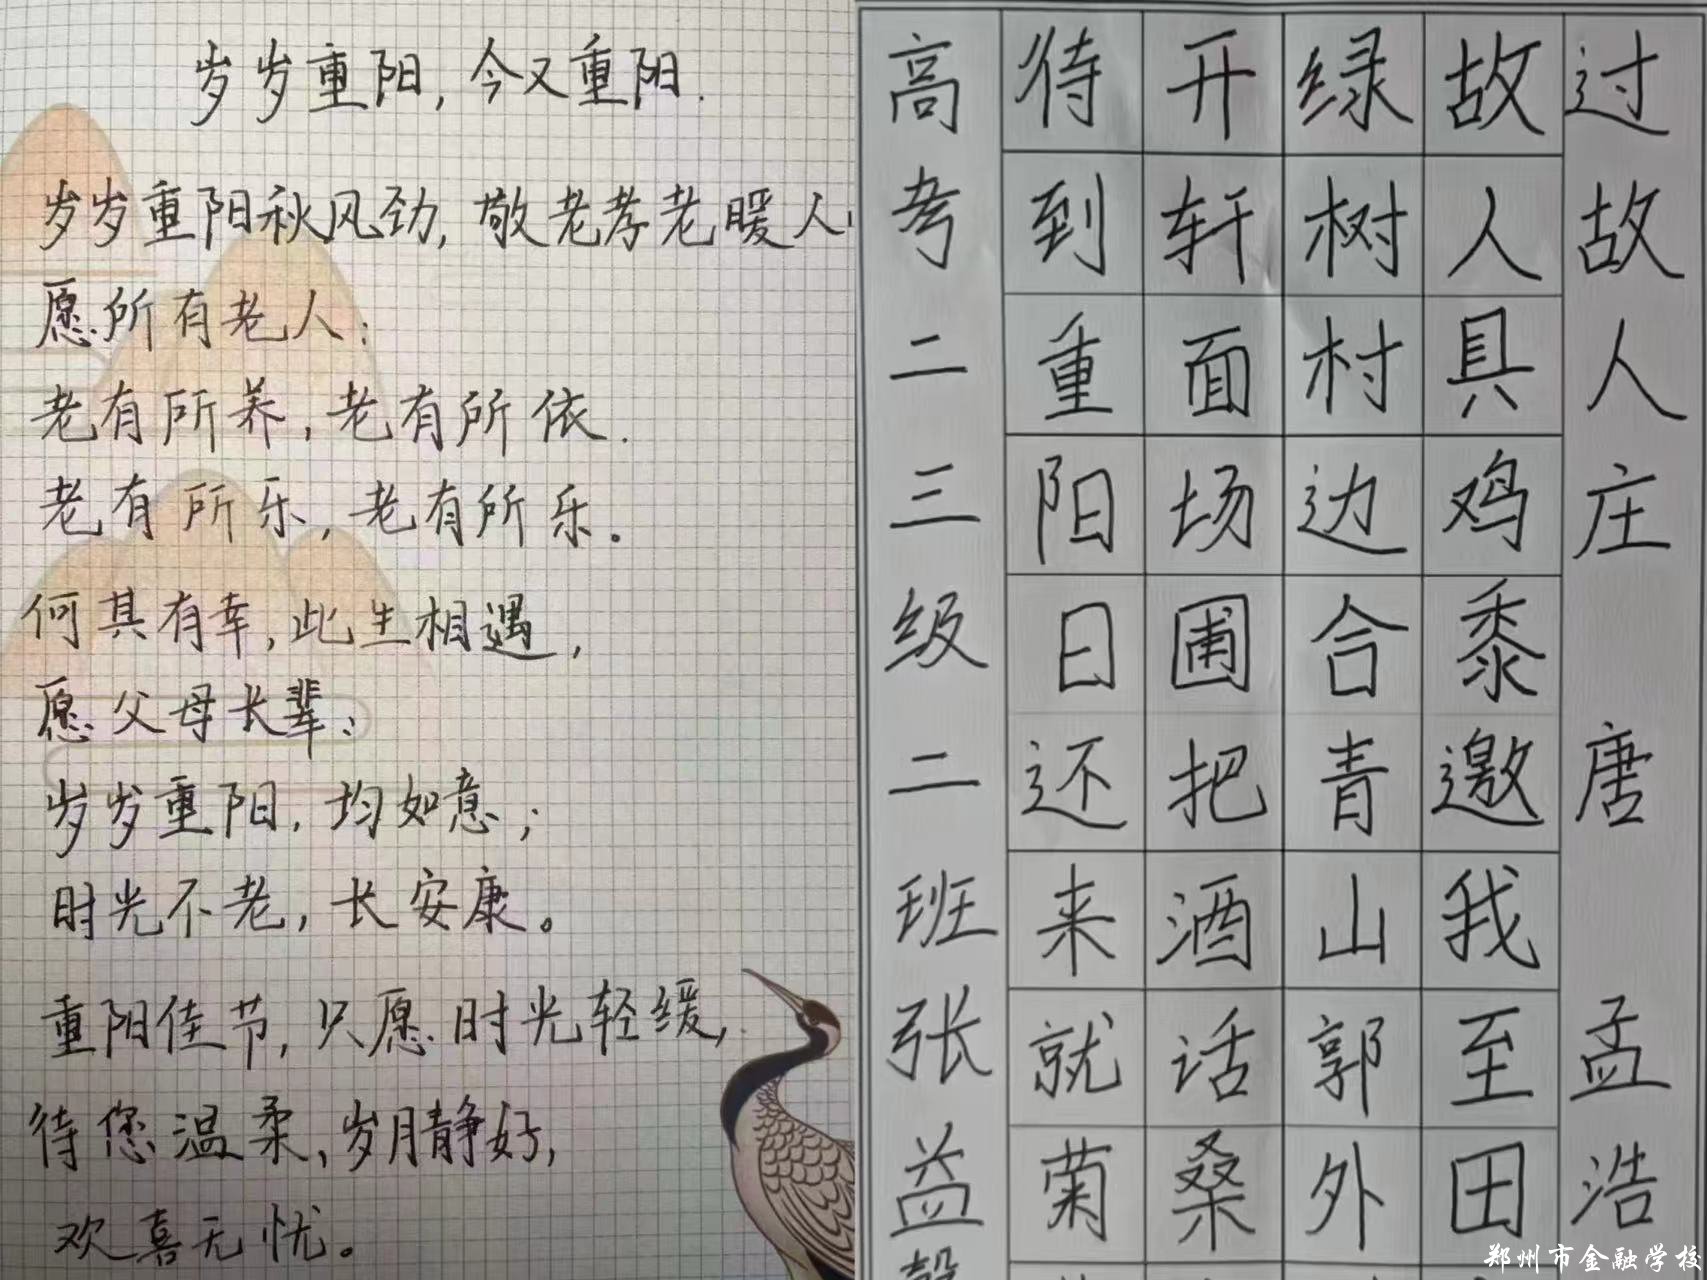 岁岁重阳，今又重阳.
岁岁重阳秋风劲，敬老孝老暖人
愿所有老人：
老有所养，老有所依.
老有所乐，老有所乐.
何其有幸，此生相遇，
愿父母长辈：
岁岁重阳，均如意；
时光不老，长安康。
重阳佳节，只愿时光轻缓，
待您温柔，岁月静好，
欢喜无忧。
过故人庄 唐 孟浩
故人具鸡黍邀我至田
绿树村边合青山郭外
开轩面场圃把酒话桑
待到重阳日还来就菊
高考二三级二班张益
郑州市金融学校